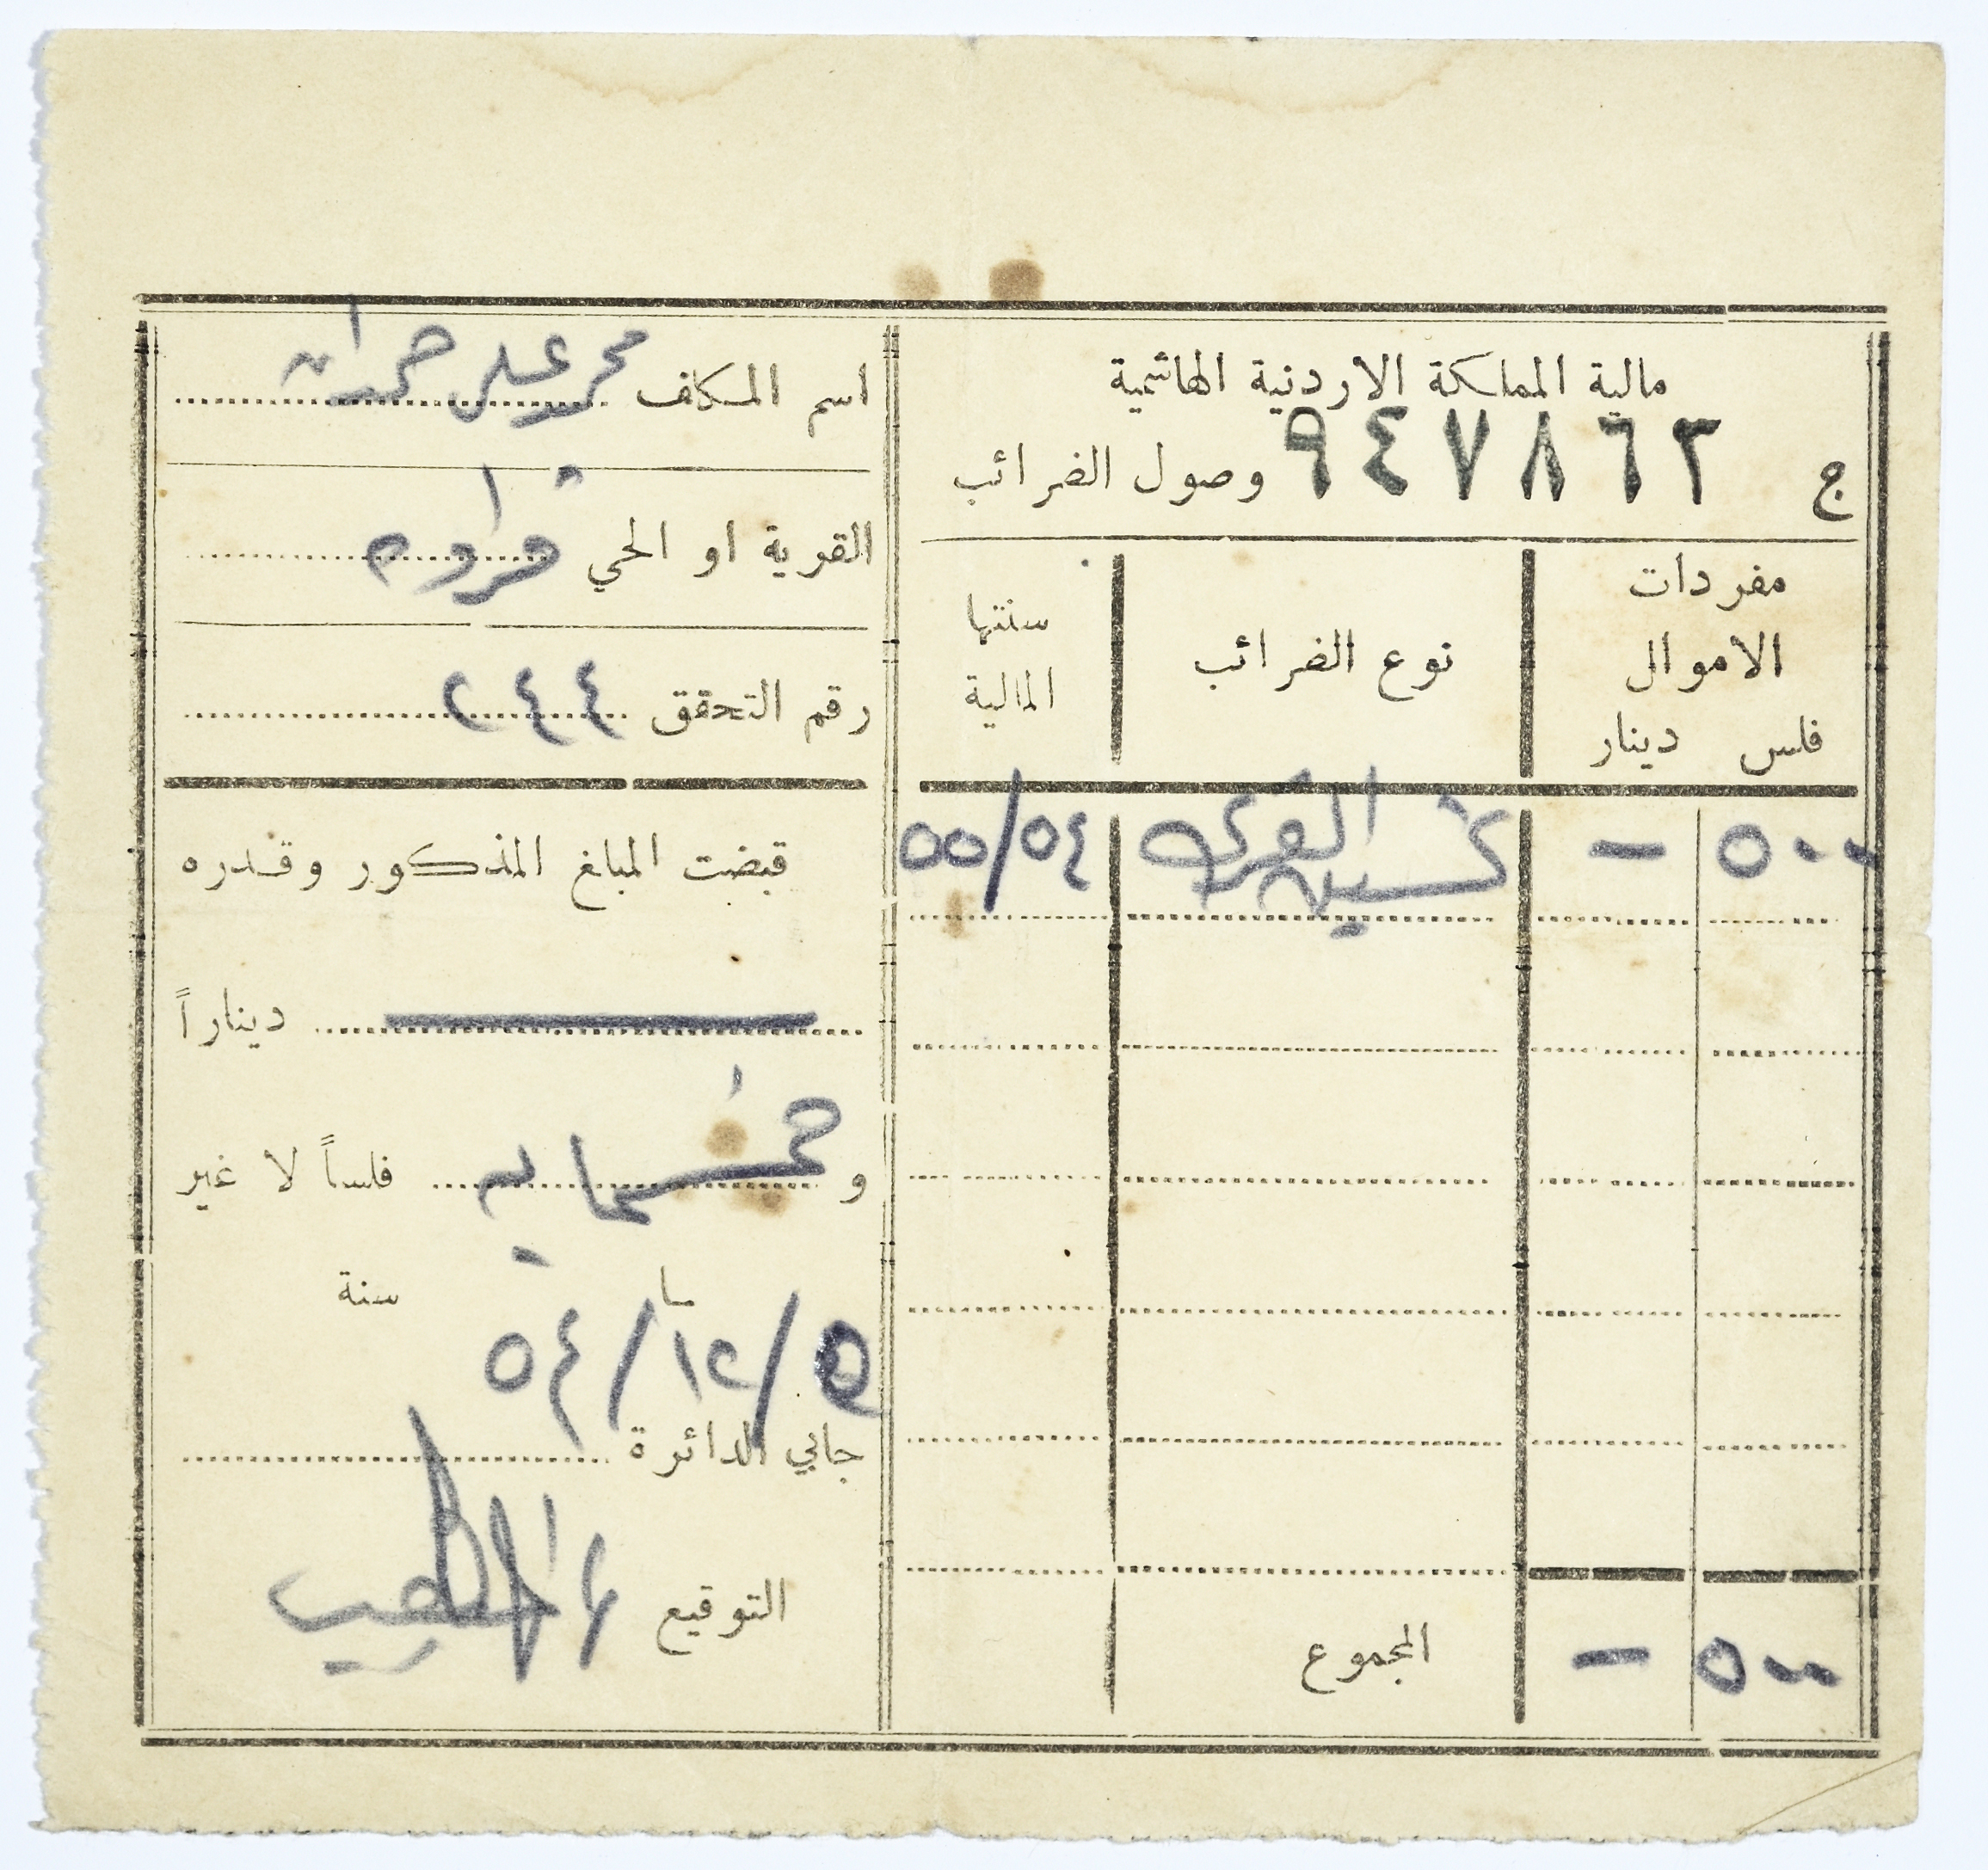 مالية المملكة الاردنية الهاشمية
ج ٩٤٧٨٦٣ وصول الضرائب
مفردات الاموال
فلس دينار
نوع الضرائب
سنتها المالية
٥٠٠ — ٥٥/٥٤
المجموع
٥٠٠ —
اسم المكلف محمد علي حمدان
القرية او الحي
رقم التحقق ٢٤٤
قبضت المبلغ المذكور وقدره
ديناراً
و خمسماية فلساً لا غير
سنة
٥/١٢/٥٤
جابي الدائرة
التوقيع